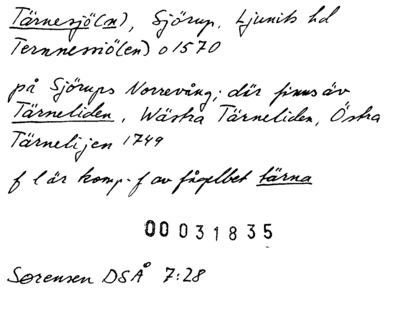 Tärnesjö(n), Sjörup, Ljunits hd
Ternnessiö(en) o 1570
på Sjörups Norrevång; där finns äv
Tärneliden, Wästra Tärneliden, Östra
Tärnelijen 1749
f l är komp. f av fågelbet tärna
00031835
Sørensen DSÅ 7:28